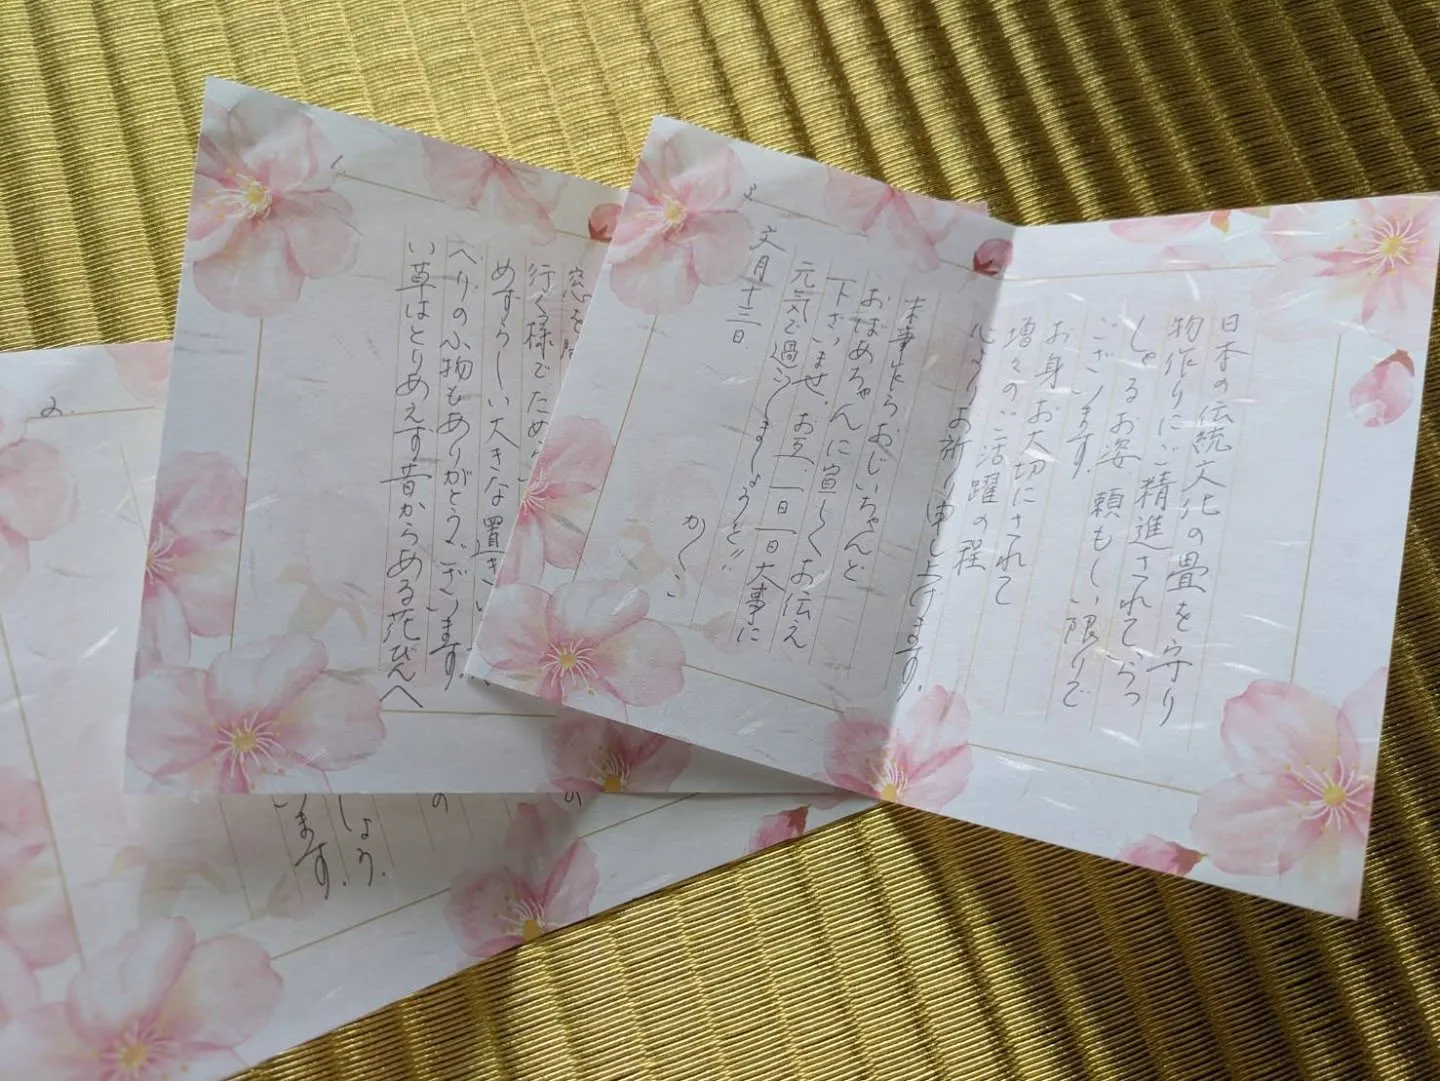 1.
行く様でため
めずらしい大きな置き
べりの小物もありがとうございます。
い草はとりあえず昔からある花びんへ
2.
しょう。
います。
3.
日本の伝統文化の畳を守り
物作りにご精進されていらっ
しゃるお姿、頼もしい限りで
ございます。
お身お大切にされて
増々のご活躍の程
心よりお祈り申し上げます。
末筆乍らおじいちゃんと
おばあちゃんに宜しくお伝え
下さいませ。お互い一日一日大事に
元気で過しましょうと!!
かしこ
文月十三日